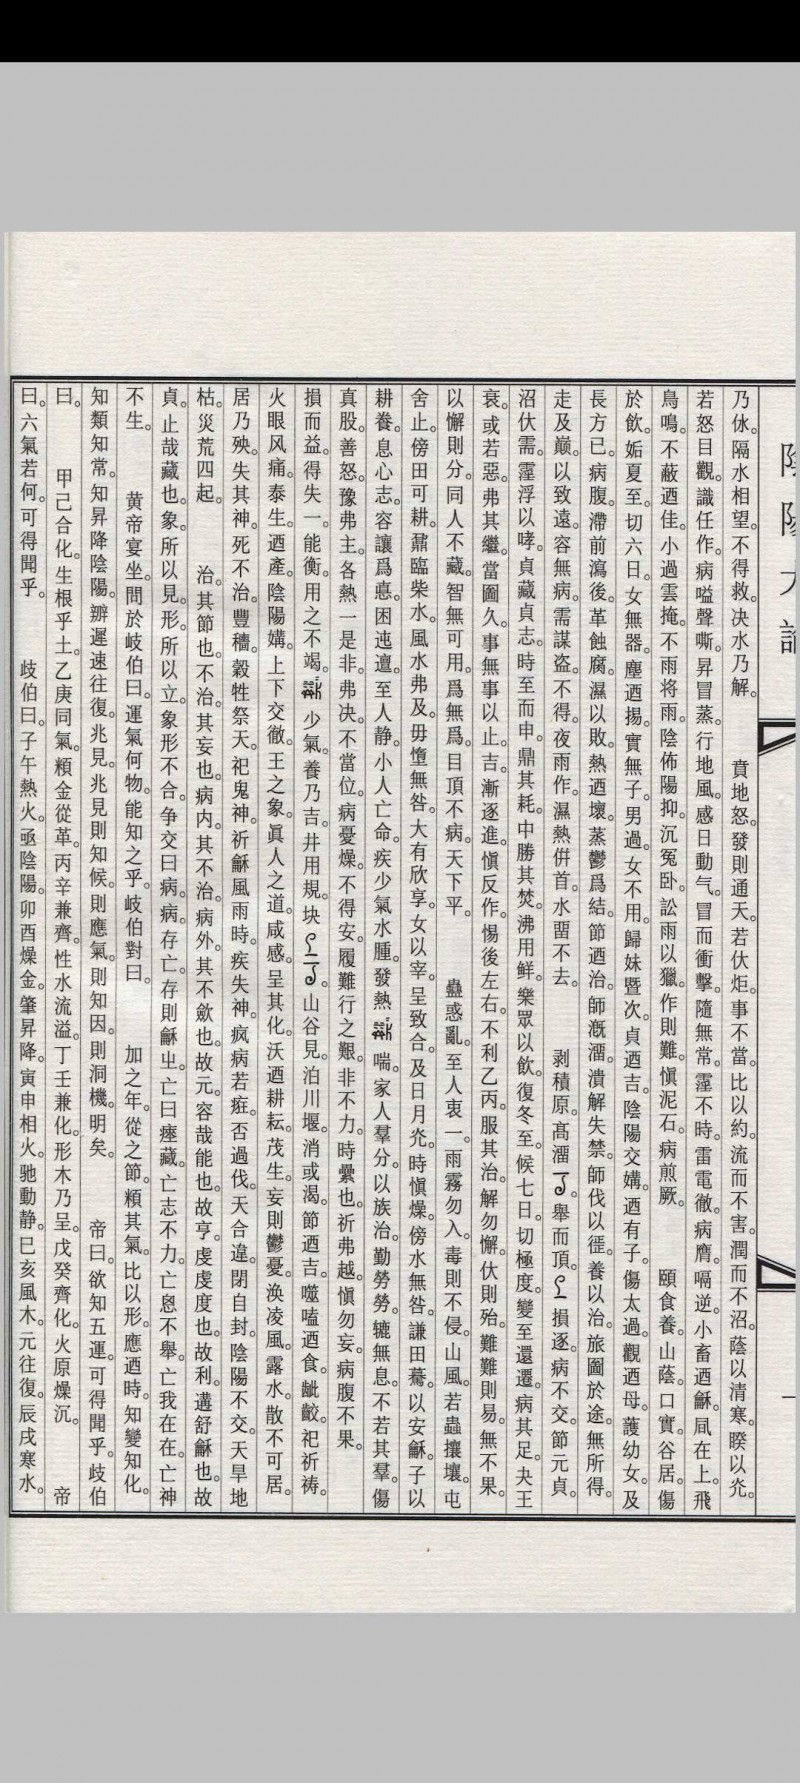 陰陽大論
一
乃休。隔水相望。不得救。决水乃解。　賁地怒。發則通天。若伏炬。事不當。比以約。流而不害。潤而不沼。蔭以清寒。睽以炎。
若怒目觀。識任作。病嗌聲嘶。昇冒蒸。行地風。感日動气。冒而衝擊。隨無常。霪不時。雷電徹。病膺。嗝逆。小畜迺龢。凨在上。飛
鳥鳴。不蔽迺佳。小過雲掩。不雨将雨。陰佈陽抑。沉冤卧。訟雨以獵。作則難。慎泥石。病煎厥。　頤食養。山蔭。口實。谷居。傷
於飲。姤夏至。切六日。女無器。塵迺揚。實無子。男過。女不用。歸妹暨次。貞迺吉。陰陽交媾。迺有子。傷太過。觀迺母。護幼女。及
長方已。病腹。滯前瀉後。革蝕腐。濕以敗。熱迺壞。蒸鬱爲結。節迺治。師溉澑。潰解失禁。師伐以徰。養以治。旅圖於途。無所得。
走及巅。以致遠。容無病。需謀盗。不得。夜雨作。濕熱併首。水畱不去。　剥積原。髙澑舉而頂。損逐。病不交。節元貞。
沼伏需。霪浮以哮。貞藏貞志。時至而申。鼎其耗。中勝其焚。沸用鲜。樂眾以飲。復冬至。候七日。切極度。變至還遷。病其足。夬王
衰。或若惡。弗其繼。當圖久。事無事以止。吉。漸逐進。慎反作。惕後左右。不利乙丙。服其治。解勿懈。伏則殆。難難則易。無不果。
以懈則分。同人不藏。智無可用。爲無爲。目頂不病。天下平。　蠱惑亂。至人衷一。雨霧勿入。毒則不侵。山風。若蟲攘壤。屯
舍止。傍田可耕。鼐臨柴水。風水弗及。毋墮無咎。大有欣享。女以宰。呈致合。及日月炎。時慎燥。傍水無咎。謙田驀。以安龢。子以
耕養。息心志。容讓爲悳。困迍邅。至人静。小人亡命。疾少氣水腫。發熱喘。家人羣分。以族治。勤勞勞。辘無息。不若其羣。傷
真股。善怒。豫弗主。各熱一是非。弗决。不當位。病憂燥。不得安。履難行之艱。非不力。時纍也。祈弗越。慎勿妄。病腹不果。
損而益。得失一。能衡。用之不竭。少氣。養乃吉。井用規。块山谷見。泊川堰。消或渴。節迺吉。噬嗑迺食。齜齩。祀祈祷。
火眼风痛。泰生。迺產。陰陽媾。上下交徹。王之象。眞人之道。咸感。呈其化。沃迺耕耘。茂生。妄則鬱憂。涣凌風。露水。散不可居。
居乃殃。失其神。死不治。豐穡。穀牲祭天。祀鬼神。祈龢風雨時。疾失神。疯病若疰。否過伐。天合違。閉自封。陰陽不交。天旱地
枯。災荒四起。　治。其節也。不治。其妄也。病内。其不治。病外。其不歛也。故元。容哉能也。故亨。虔虔度也。故利。遘舒龢也。故
貞。止哉藏也。象。所以見。形。所以立。象形不合。争交曰病。病。存亡。存則龢㞢。亡曰瘗藏。亡志不力。亡恖不舉。亡我在在。亡神
不生。　黄帝宴坐。問於岐伯曰。運氣何物。能知之乎。岐伯對曰。　加之年。從之節。頪其氣。比以形。應迺時。知變知化。
知類知常。知昇降陰陽。辧遲速往復。兆見。兆見則知候。則應氣。則知因。則洞機。明矣。　帝曰。欲知五運。可得聞乎。歧伯
曰。　甲己合化。生根乎土。乙庚同氣。頪金從革。丙辛兼齊。性水流溢。丁壬兼化。形木乃呈。戊癸齊化。火原燥沉。　帝
曰。六氣若何。可得聞乎。　歧伯曰。子午熱火。亟陰陽。卯酉燥金。肇昇降。寅申相火。驰動静。巳亥風木。元往復。辰戌寒水。